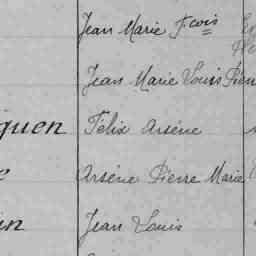 Jean Marie F.cois
Jean Marie Louis Pierre
guen Félix Arsène
e Arsène Pierre Marie
in Jean Louis